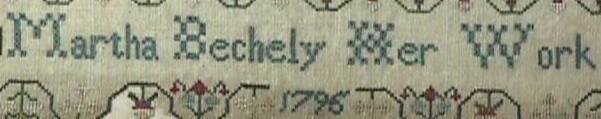 Martha Bechely Her Work
1796